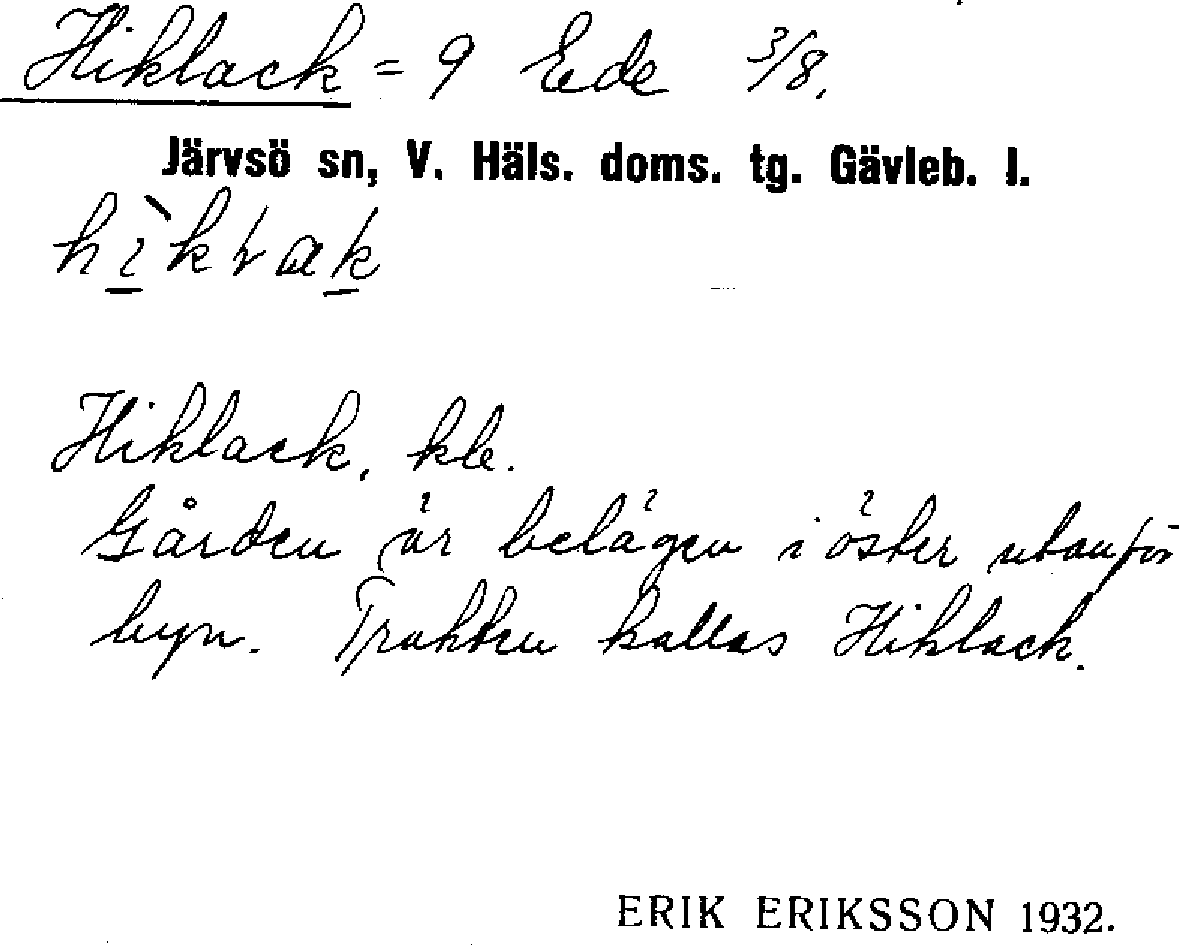 Hiklack = 9 Ede 3/8.
Järvsö sn, V. Häls. doms. tg. Gävleb. l.
Hiklack, kle.
Gården är belägen i öster utanför
byn. Trakten kallas Hiklack.
ERIK ERIKSSON 1932.